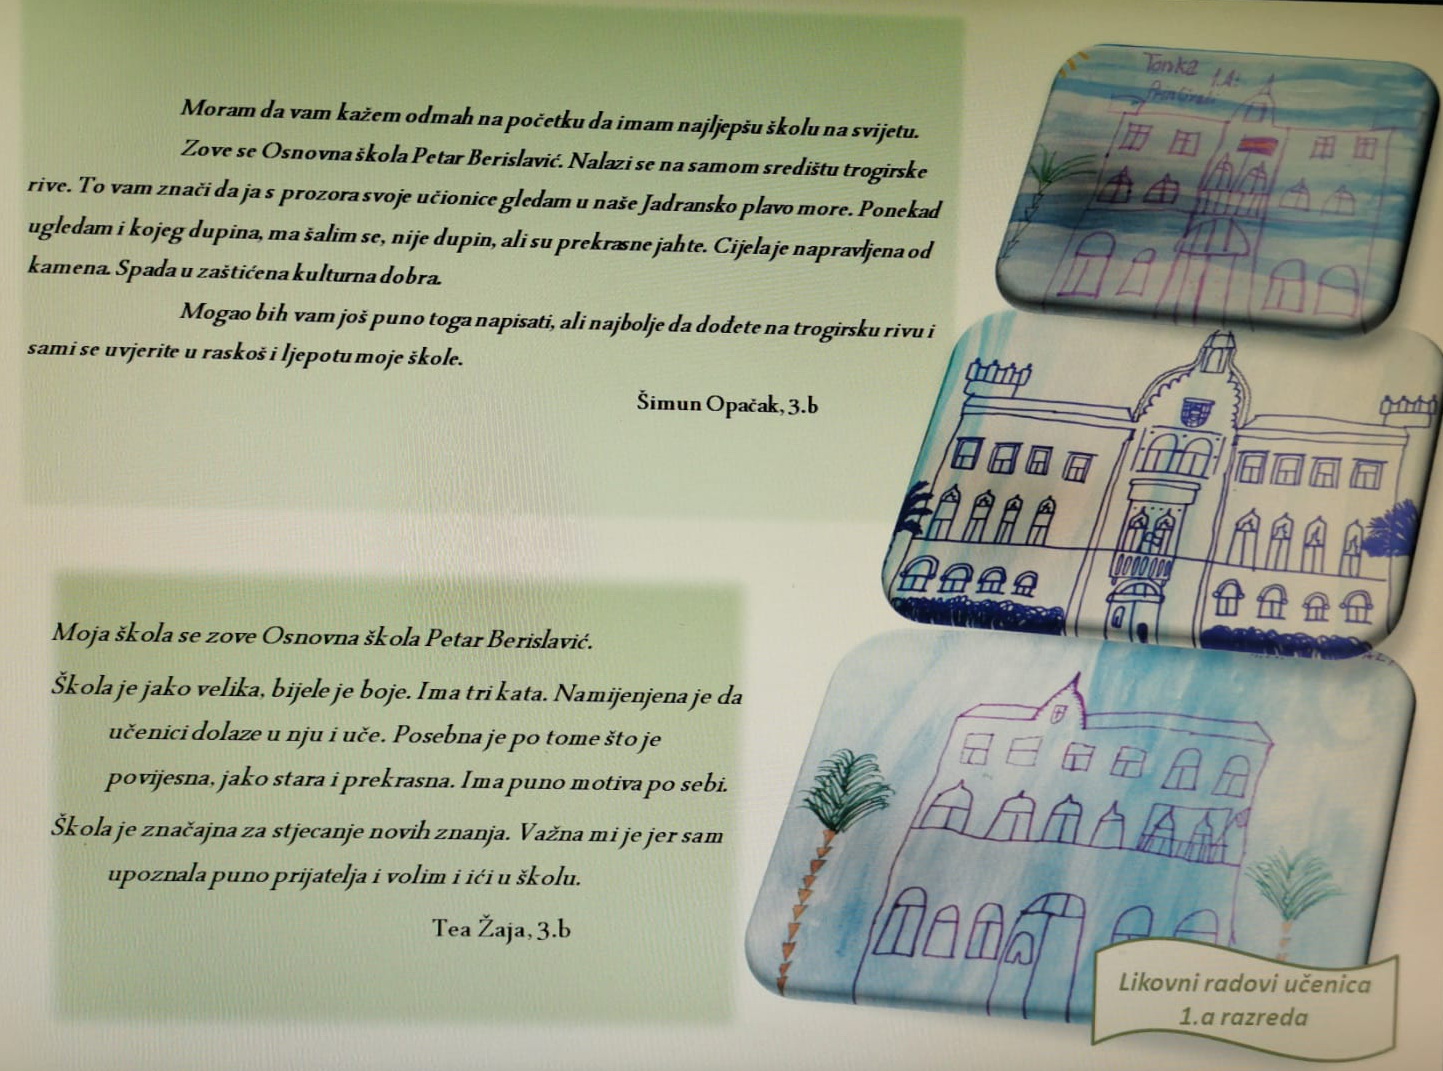 Moram da vam kažem odmah na početku da imam najljepšu školu na svijetu.
Zove se Osnovna škola Petar Berislavić. Nalazi se na samom središtu trogirske
rive. To vam znači da ja s prozora svoje učionice gledam u naše Jadransko plavo more. Ponekad
ugledam i kojeg dupina, ma šalim se, nije dupin, ali su prekrasne jahte. Cijela je napravljena od
kamena. Spada u zaštićena kulturna dobra.
Mogao bih vam još puno toga napisati, ali najbolje da dođete na trogirsku rivu i
sami se uvjerite u raskoš i ljepotu moje škole.
Šimun Opačak, 3.b
Moja škola se zove Osnovna škola Petar Berislavić.
Škola je jako velika, bijele je boje. Ima tri kata. Namijenjena je da
učenici dolaze u nju i uče. Posebna je po tome što je
povijesna, jako stara i prekrasna. Ima puno motiva po sebi.
Škola je značajna za stjecanje novih znanja. Važna mi je jer sam
upoznala puno prijatelja i volim i ići u školu.
Tea Žaja, 3.b
Tonka 1.A:
Likovni radovi učenica
1.a razreda